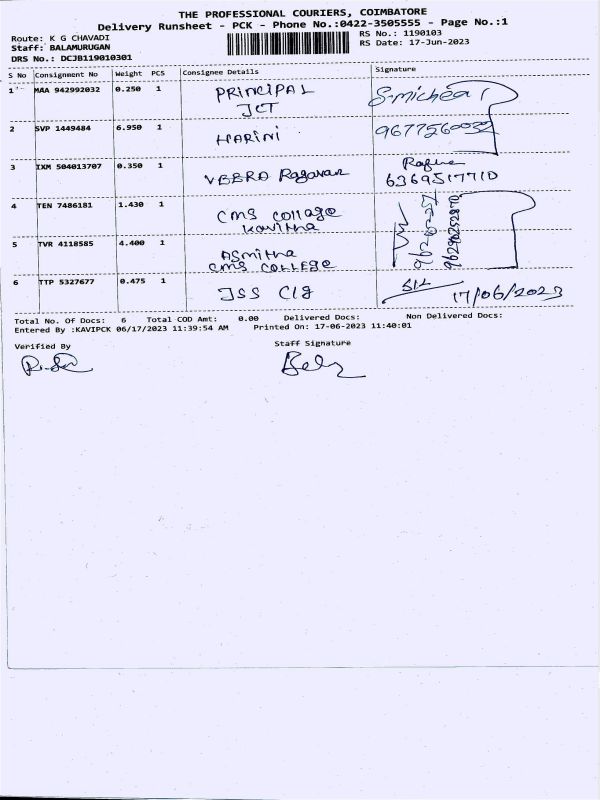 THE PROFESSIONAL COURIERS, COIMBATORE
Delivery Runsheet - PCK - Phone No.:0422-3505555 - Page No.:1
Route: K G CHAVADI
RS No.: 1190103
Staff: BALAMURUGAN
RS Date: 17-Jun-2023
DRS No.: DCJB119010301
S No Consignment No Weight PCS Consignee Details Signature
1 MAA 942992032 0.250 1 PRINCIPAL S.michea
JCT
2 SVP 1449484 6.950 1 HARINI
3 IXM 504013707 0.350 1 VEERA Ragavan
6369517710
4 TEN 7486181 1.430 1 CMS Collage
Kavitha
9629025287
5 TVR 4118585 4.400 1 ASmitha
CMS COLLEGE
6 TTP 5327677 0.475 1 JSS Clg
17/06/2023
Total No. Of Docs: 6 Total COD Amt: 0.00 Delivered Docs: Non Delivered Docs:
Entered By :KAVIPCK 06/17/2023 11:39:54 AM Printed On: 17-06-2023 11:40:01
Verified By Staff Signature